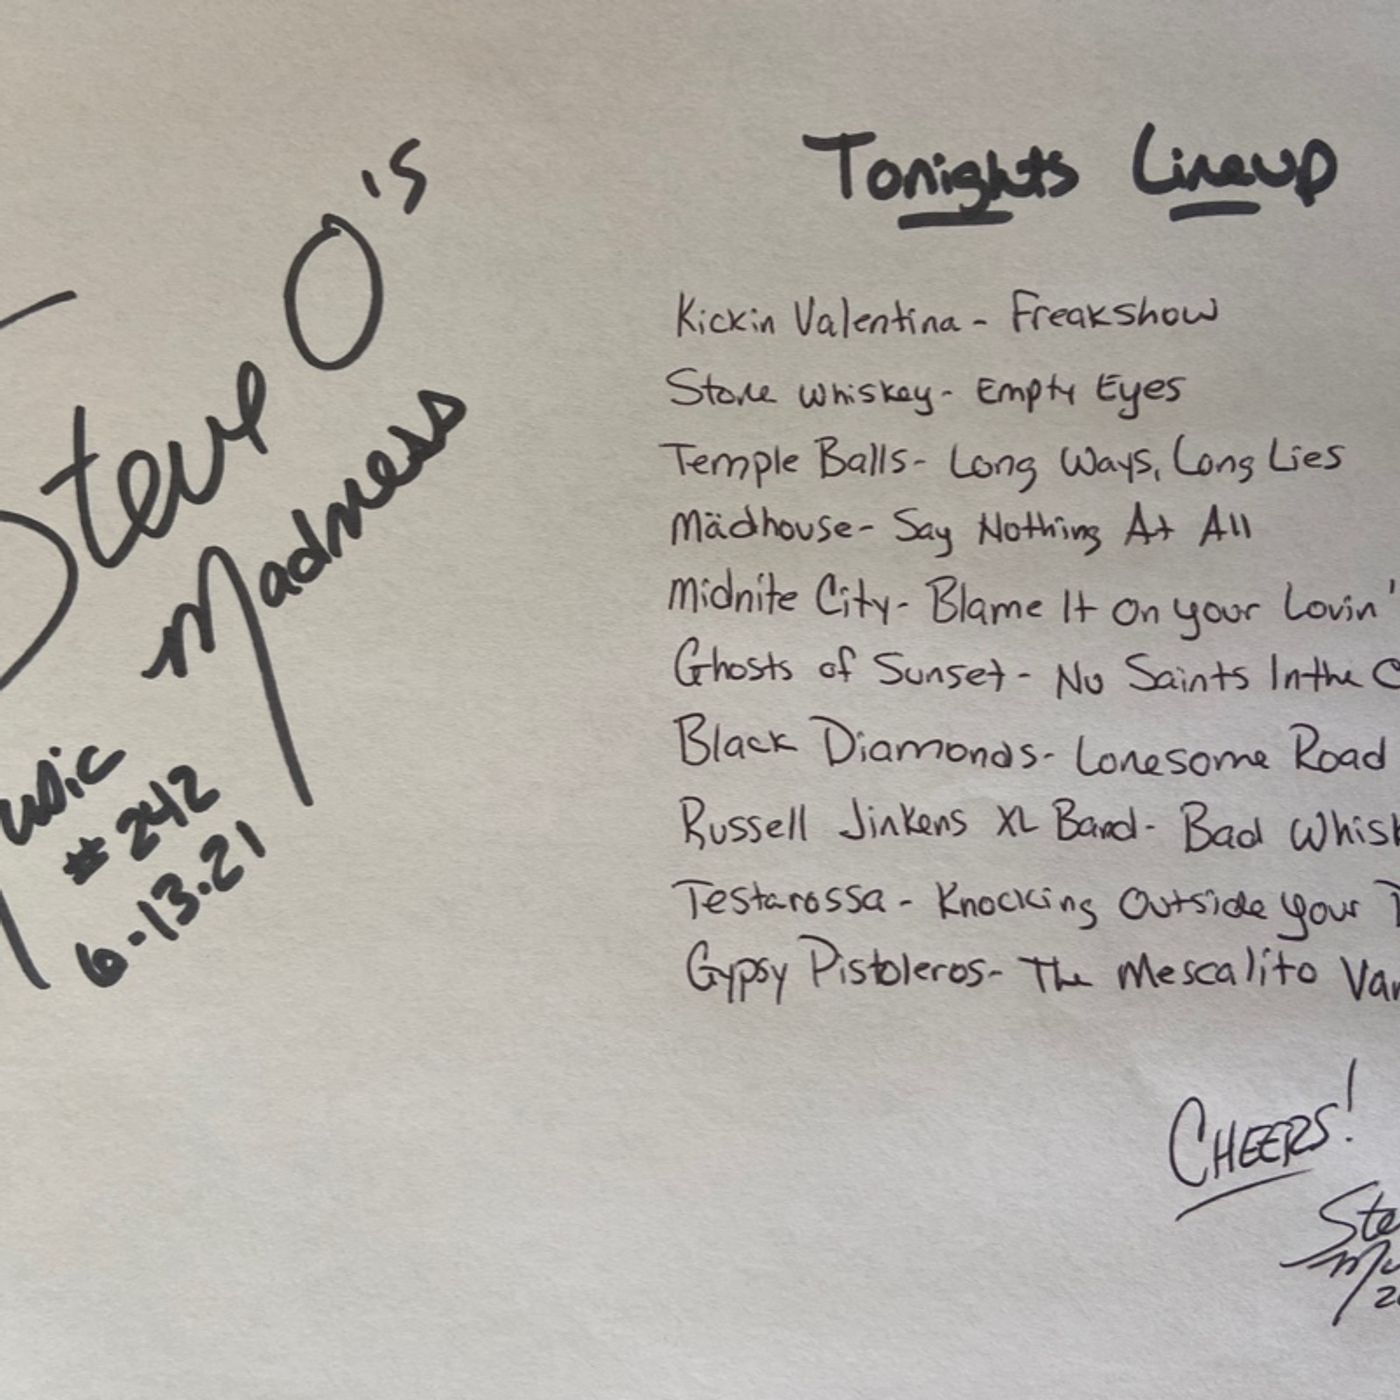 Steve O's
Madness
#242
6-13.21
Tonights Lineup
Kickin Valentina - Freakshow
Stone Whiskey - Empty Eyes
Temple Balls - Long Ways, Long Lies
Mädhouse - Say Nothing At All
Midnite City - Blame It On Your Lovin'
Ghosts of Sunset - No Saints In the
Black Diamonds - Lonesome Road
Russell Jinkens XL Band - Bad
Testarossa - Knocking Outside Your
Gypsy Pistoleros - The Mescalito
CHEERS!